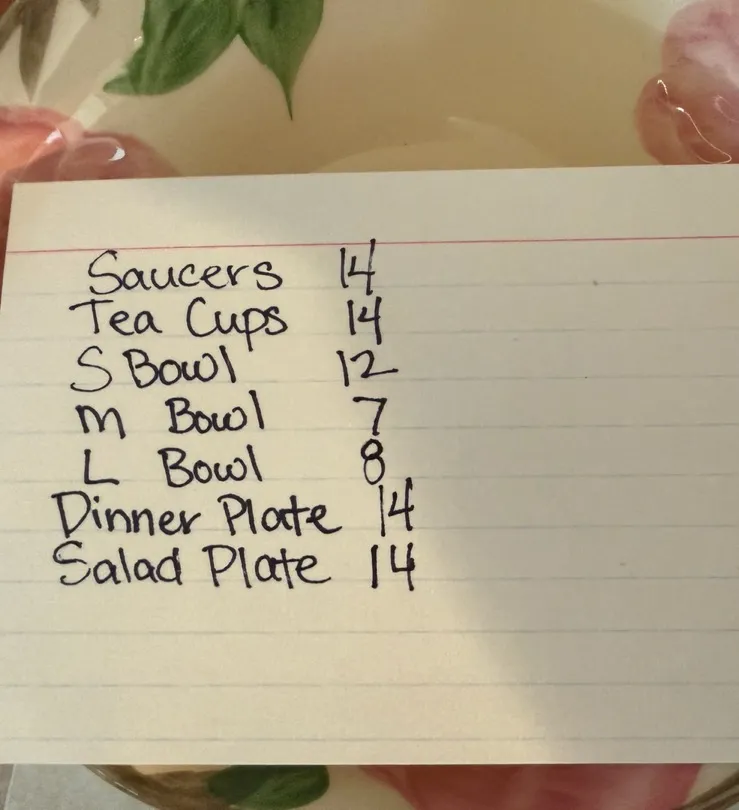 Saucers 14
Tea Cups 14
S Bowl 12
M Bowl 7
L Bowl 8
Dinner Plate 14
Salad Plate 14